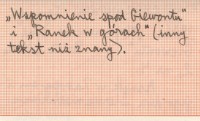 „Wspomnienie spod Giewontu"
i „Ranek w górach" (inny
tekst niż znany).